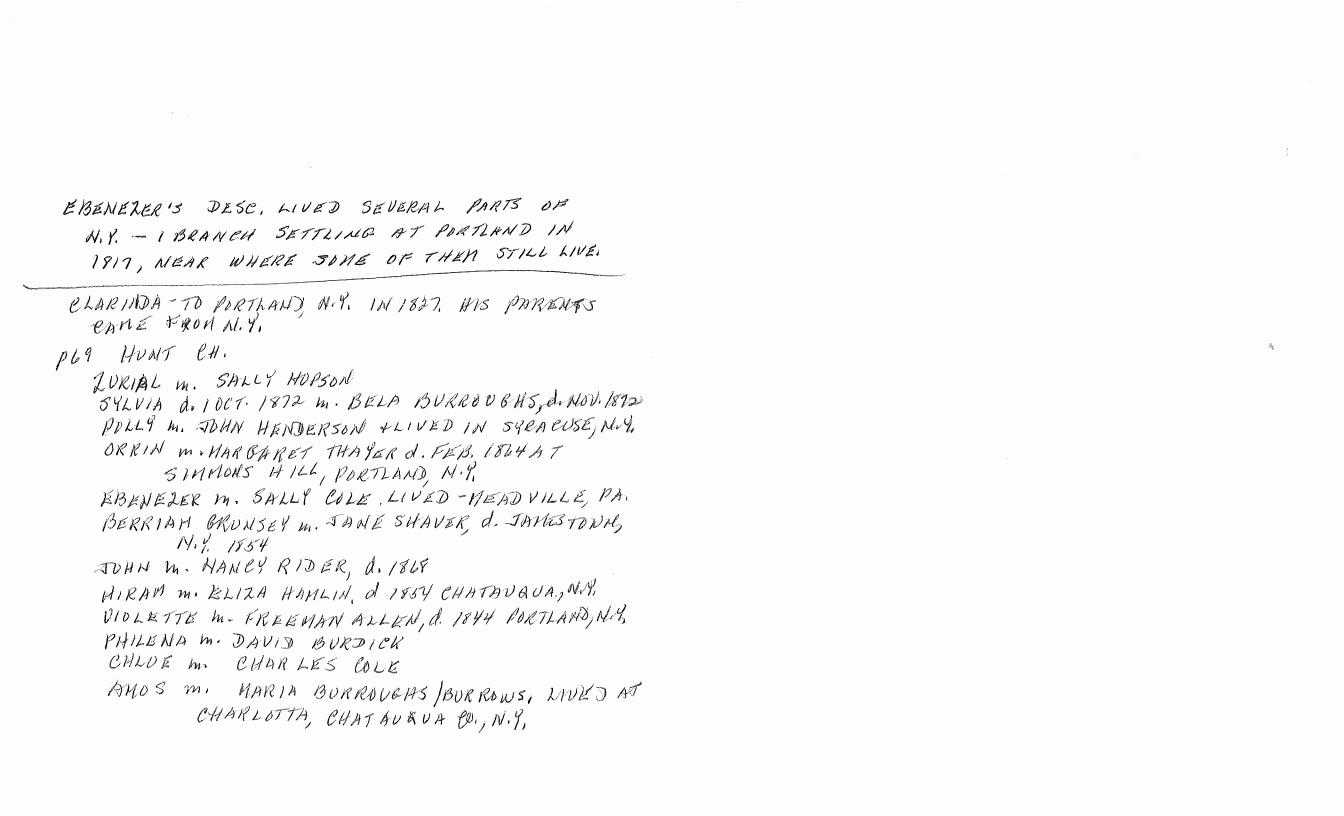 EBENEZER'S DESC. LIVED SEVERAL PARTS OF
N.Y. — 1 BRANCH SETTLING AT PORTLAND IN
1817, NEAR WHERE SOME OF THEM STILL LIVE.
CLARINDA - TO PORTLAND, N.Y. IN 1827. HIS PARENTS
CAME FROM N.Y.
p69 HUNT CH.
ZURIAL m. SALLY HOPSON
SYLVIA d. 1 OCT. 1872 m. BELA BURROUGHS, d. NOV. 1872
POLLY m. JOHN HENDERSON + LIVED IN SYRACUSE, N.Y.
ORRIN m. MARGARET THAYER d. FEB. 1864 AT
SIMMONS HILL, PORTLAND, N.Y.
EBENEZER m. SALLY COLE. LIVED - MEADVILLE, PA.
BERRIAH BRUNSEY m. JANE SHAVER, d. JAMESTOWN,
N.Y. 1854
JOHN m. NANCY RIDER, d. 1868
HIRAM m. ELIZA HAMLIN, d 1854 CHATAUQUA., N.Y.
VIOLETTE m. FREEMAN ALLEN, d. 1844 PORTLAND, N.Y.
PHILENA m. DAVID BURDICK
CHLOE m. CHARLES COLE
AMOS m. MARIA BURROUGHS/BURROWS, LIVED AT
CHARLOTTA, CHATAUQUA CO., N.Y.